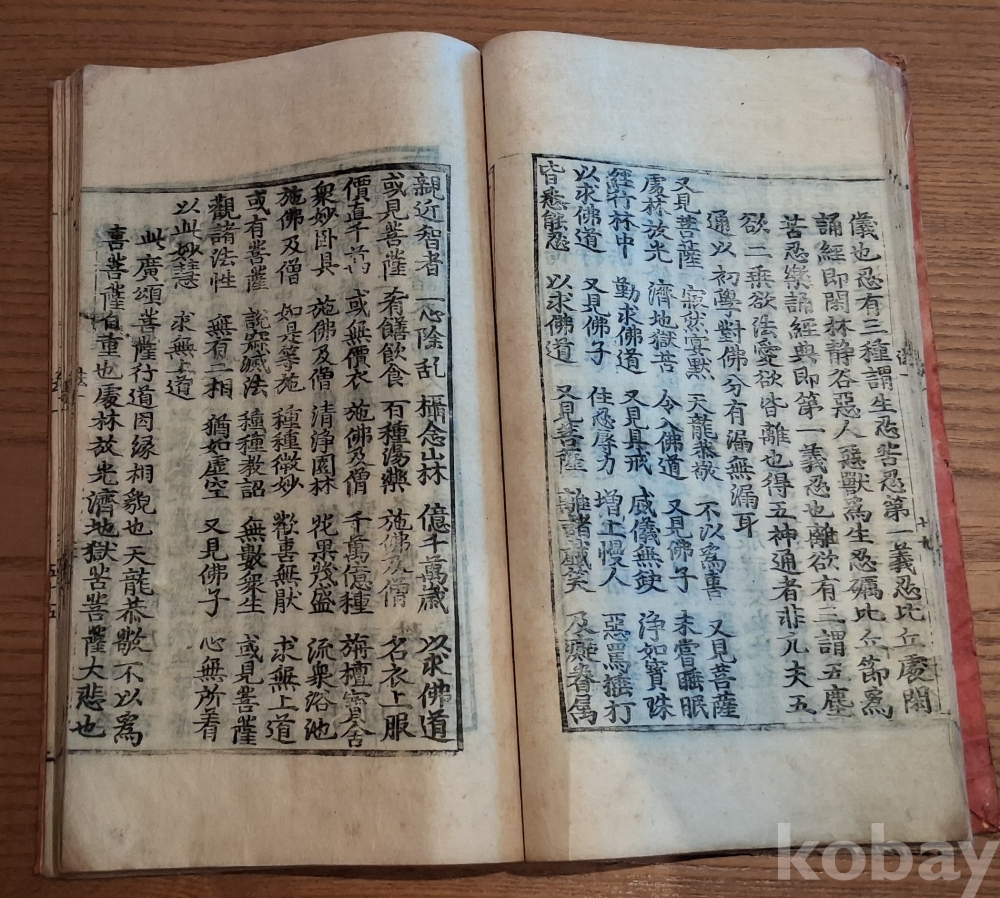 儀也忍有三種謂生忍苦忍第一義忍比丘處閑
誦經即閑林静谷惡人惡獸為生忍礪比丘節為
苦忍樂誦經典即第一義忍也離欲有二謂五塵
欲二乘欲法愛欲皆離也得五神通者非凡夫五
通以初學對佛分有漏無漏耳
又見菩薩 寂然宴默 天龍恭敬 不以為喜 又見菩薩
處林放光 濟地獄苦 令入佛道 又見佛子 未嘗睡眠
經行林中 勤求佛道 又見具戒 威儀無缺 浄如寶珠
以求佛道 又見佛子 住忍辱力 增上慢人 惡罵捶打
皆悉能忍 以求佛道 又見菩薩 離諸戲笑 及癡眷属
親近智者 一心除乱 攝念山林 億千萬歲 以求佛道
或見菩薩 肴饍飲食 百種湯藥 施佛及僧 名衣上服
價直千万 或無價衣 施佛及僧 千萬億種 旃檀寶舍
衆妙卧具 施佛及僧 清淨園林 花果茂盛 流泉浴池
施佛及僧 如是等施 種種微妙 歡喜無猒 求無上道
或有菩薩 說寂滅法 種種教詔 無數衆生 或見菩薩
觀諸法性 無有二相 猶如虚空 又見佛子 心無所着
以此妙慧 求無上道
此廣頌菩薩行道因縁相貌也天龍恭敬不以為
喜菩薩自重也處林放光濟地獄苦菩薩大悲也
kobay